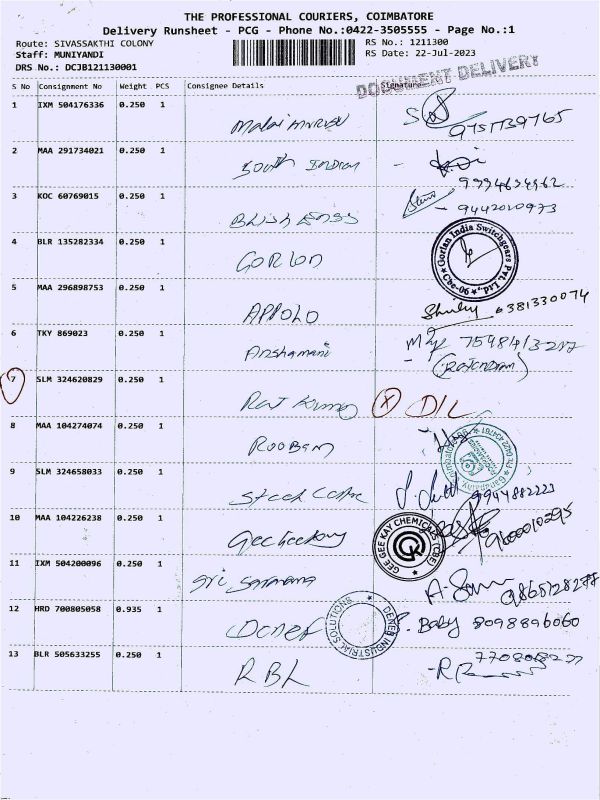 THE PROFESSIONAL COURIERS, COIMBATORE
Delivery Runsheet - PCG - Phone No.:0422-3505555 - Page No.:1
Route: SIVASSAKTHI COLONY
Staff: MUNIYANDI
DRS No.: DCJB121130001
RS No.: 1211300
RS Date: 22-Jul-2023
DOCUMENT DELIVERY
S No Consignment No Weight PCS Consignee Details Signature
1 IXM 504176336 0.250 1
9751739765
2 MAA 291734021 0.250 1 South Indian
3 KOC 60769015 0.250 1
9442020973
4 BLR 135282334 0.250 1 GORLON
Gorlan India Switchgears Pvt. Ltd. Cbe-06
5 MAA 296898753 0.250 1 APPOLO
6381330074
6 TKY 869023 0.250 1 Anshamani
(Rajendram)
7 SLM 324620829 0.250 1 Raj Kumar X D/L
8 MAA 104274074 0.250 1 ROOBAM
9 SLM 324658033 0.250 1 Steel Centre
9944882223
10 MAA 104226238 0.250 1 Geegeekay
GEE GEE KAY CHEMICALS (CBE) GGK
9600010295
11 IXM 504200096 0.250 1 Sri
12 HRD 700805058 0.935 1 Denef
DENEB INDUSTRIAL SOLUTIONS
Baby 8098896060
13 BLR 505633255 0.250 1 RBL